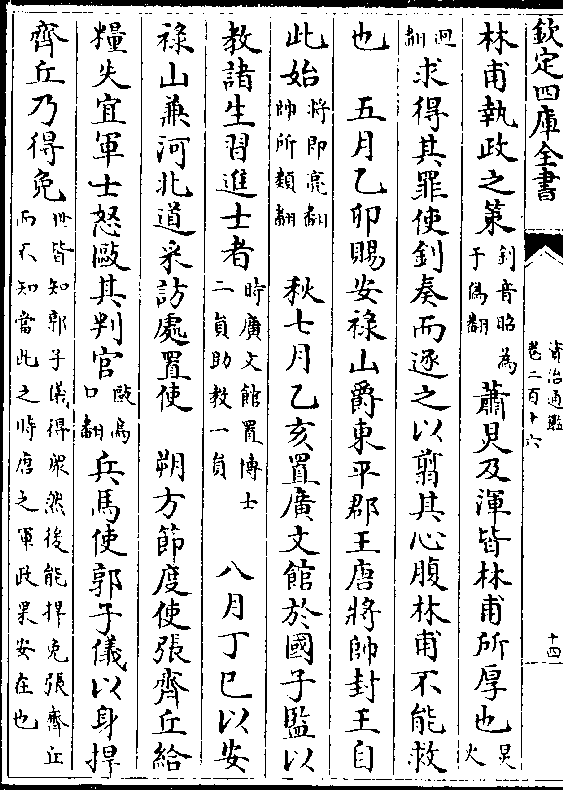 欽定四庫全書
資治通鑑
卷二百十六
十四
林甫執政之策釗音昭為于偽翻蕭炅及渾皆林甫所厚也炅火
迥翻求得其罪使釗奏而逐之以翦其心腹林甫不能救
也　五月乙卯賜安祿山爵東平郡王唐將帥封王自
此始將即亮翻帥所類翻　秋七月乙亥置廣文館於國子監以
教諸生習進士者時廣文館置博士二員助教一員　八月丁巳以安
祿山兼河北道采訪處置使　朔方節度使張齊丘給
糧失宜軍士怒毆其判官毆烏口翻兵馬使郭子儀以身捍
齊丘乃得免世皆知郭子儀得眾然後能捍免張齊丘而不知當此之時唐之軍政果安在也